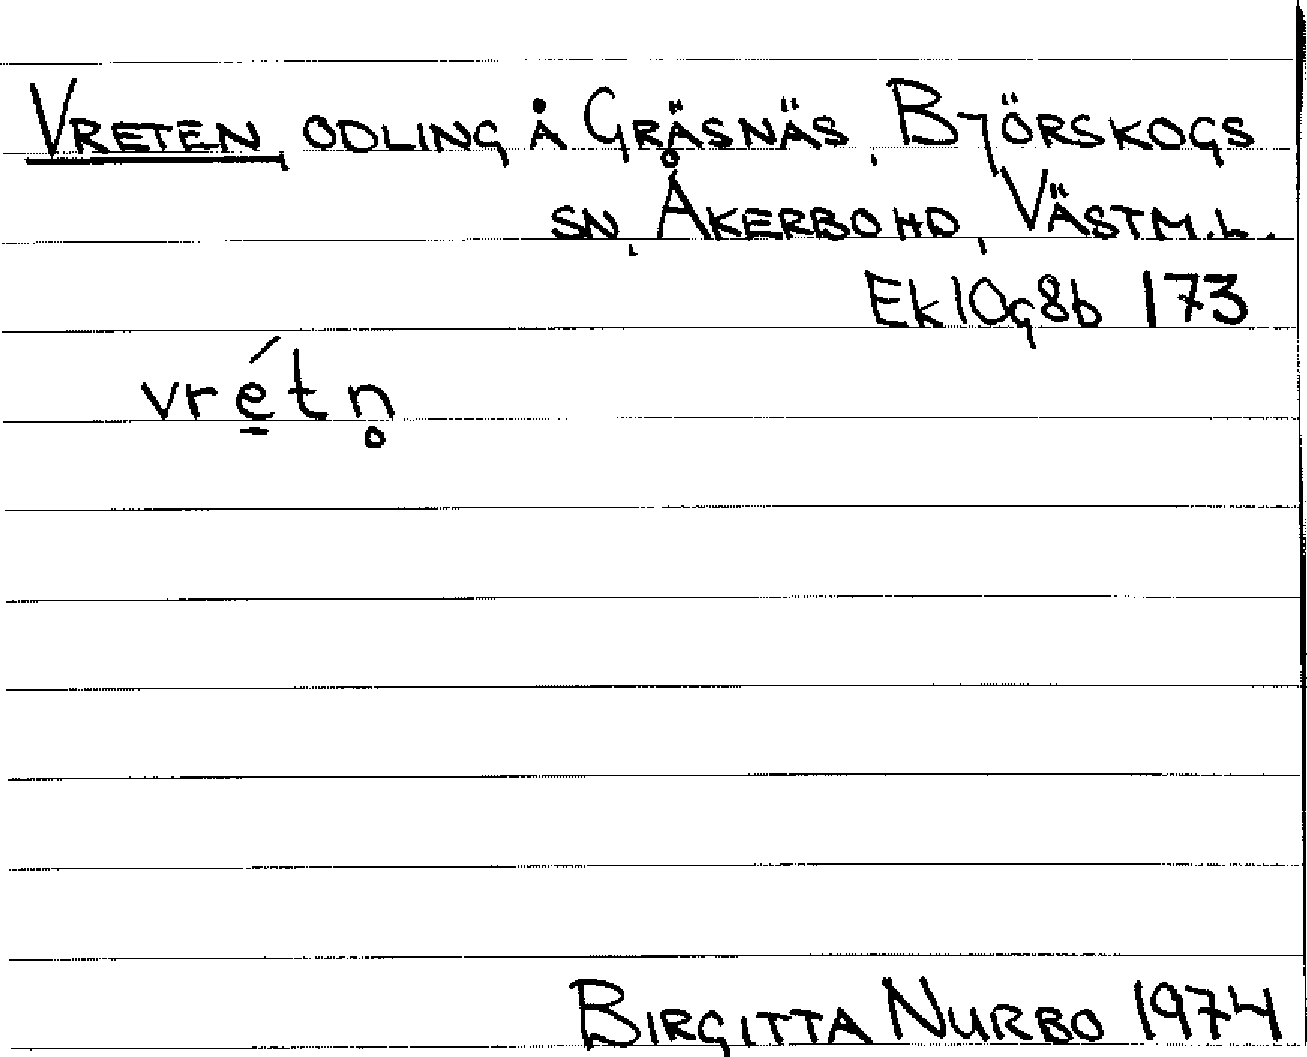 VRETEN, ODLING Å GRÄSNÄS, BJÖRSKOGS
SN, ÅKERBO HD, VÄSTM.L.
Ek 10g8b 173
vré̱tn̥
BIRGITTA NURBO 1974